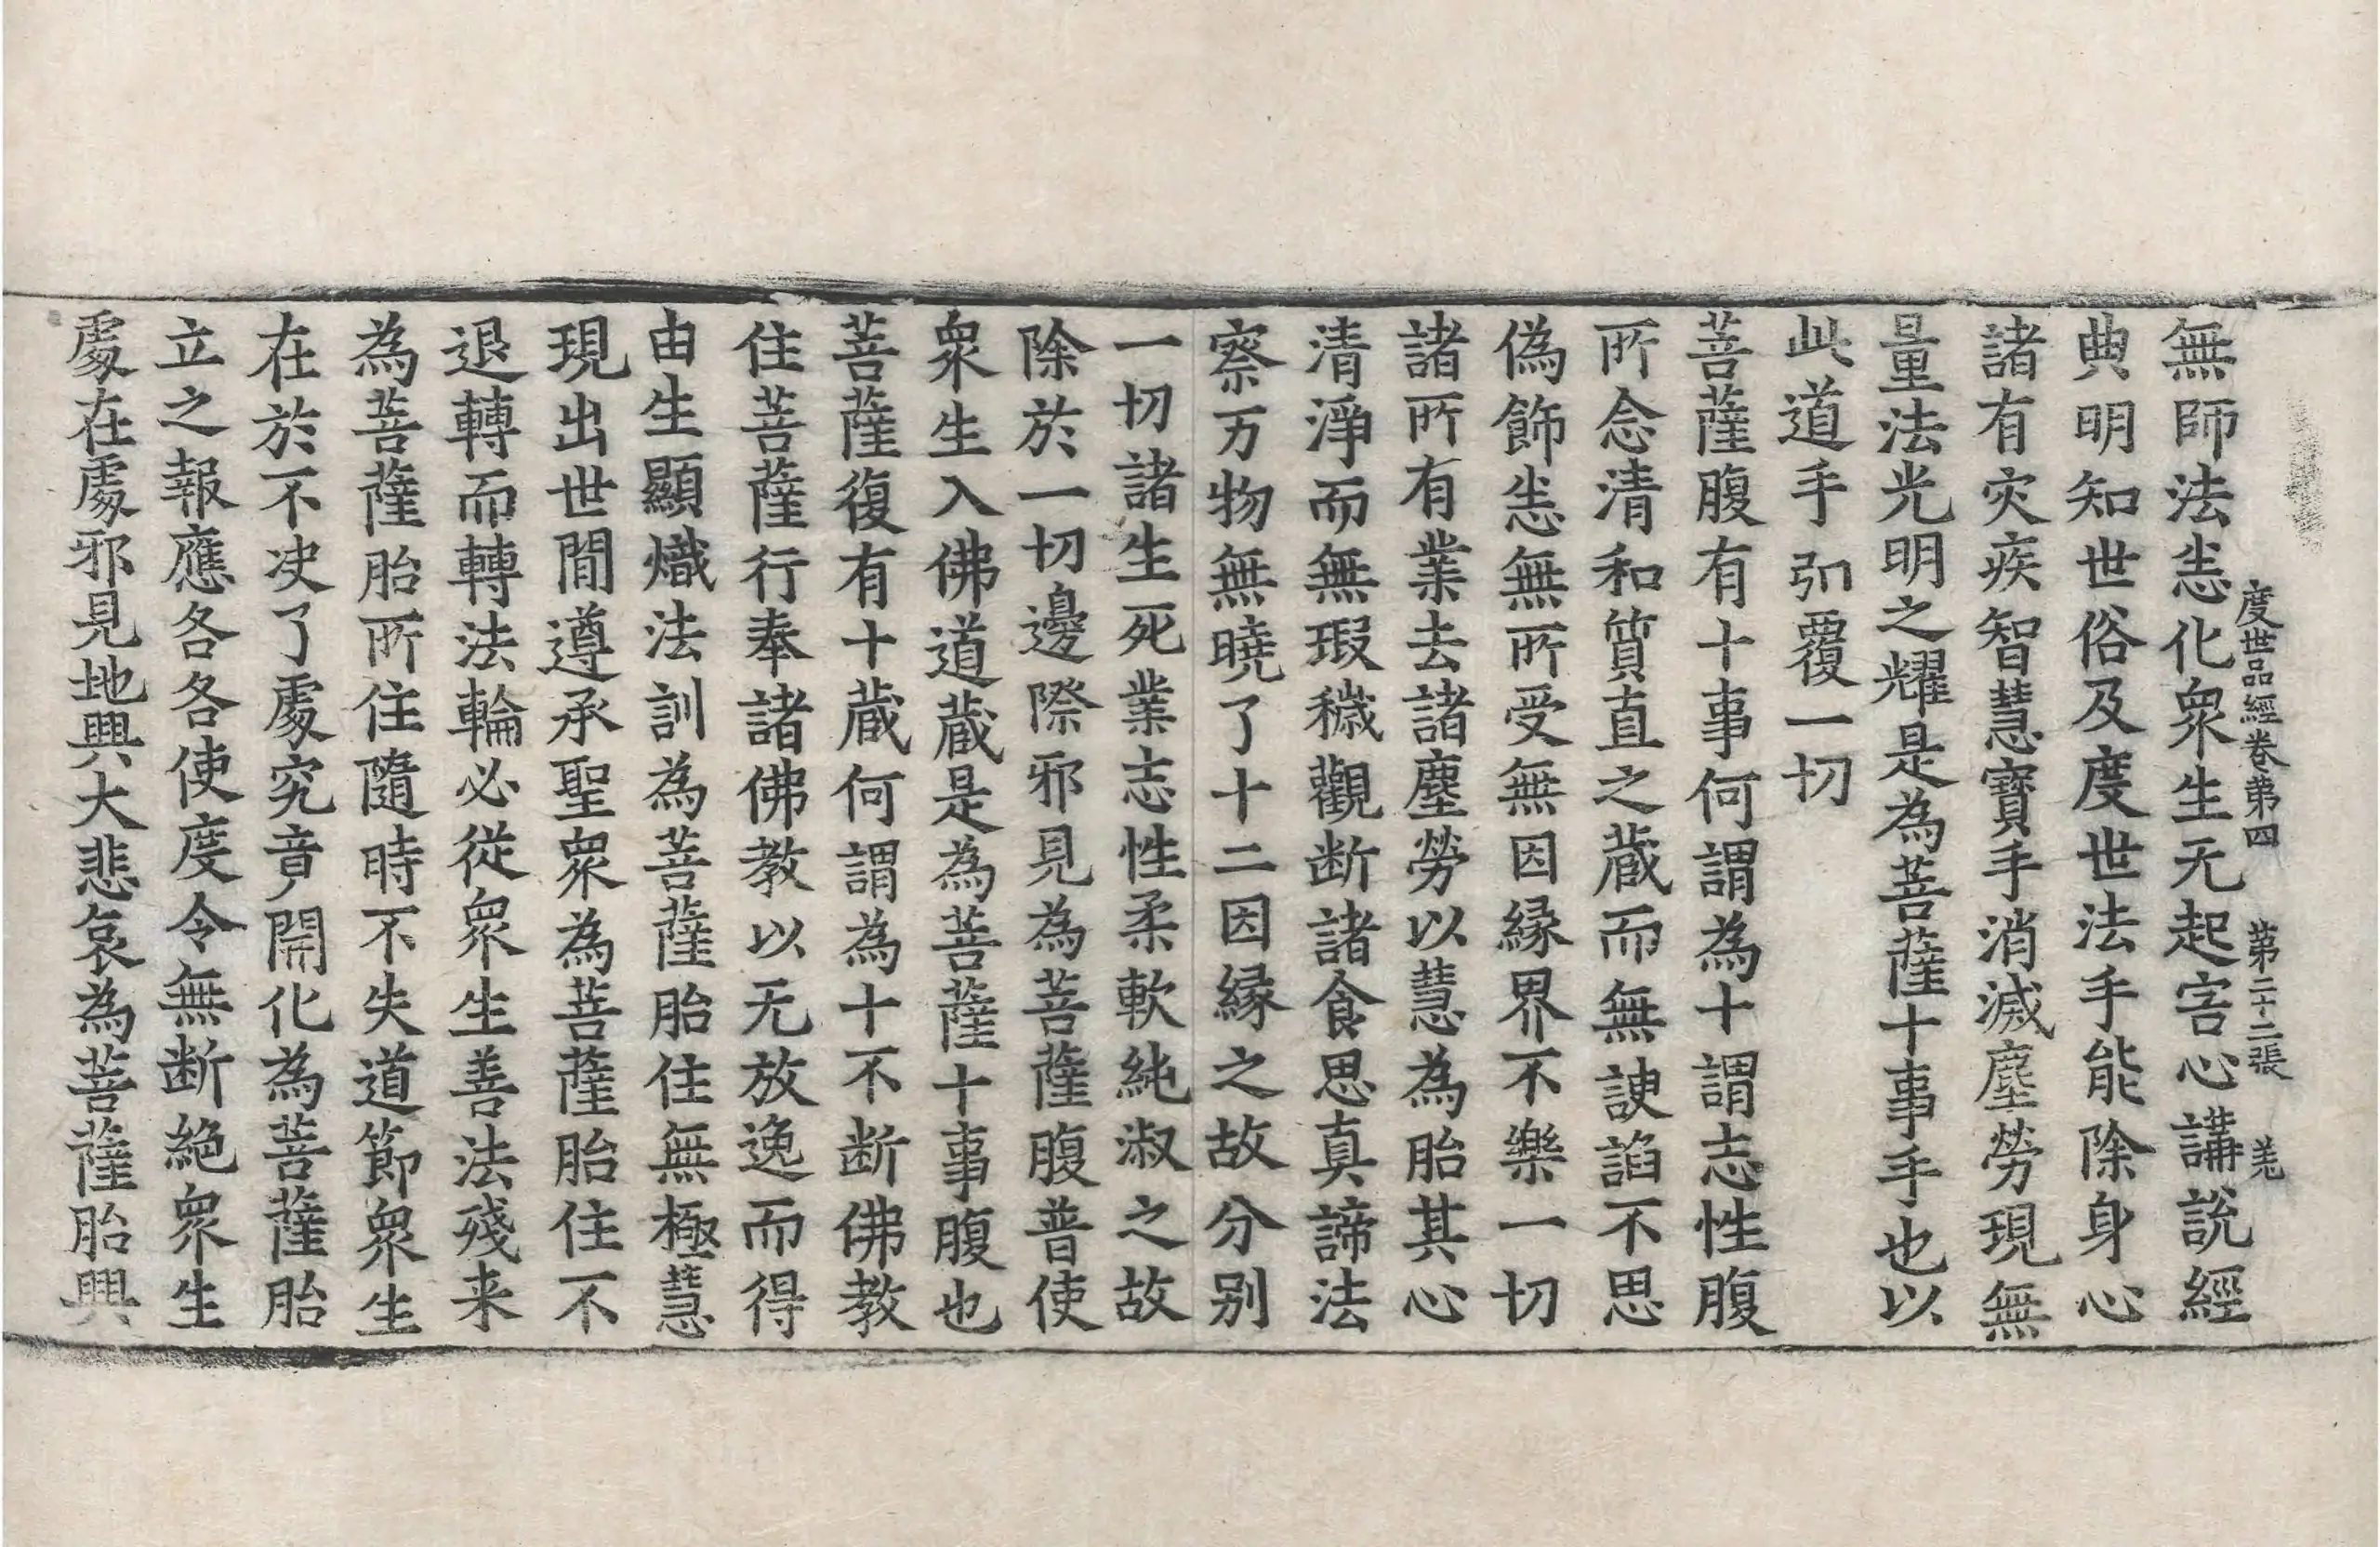 度世品經卷第四 第二十二張 羌
無師法恙化衆生无起害心講說經
典明知世俗及度世法手能除身心
諸有灾疾智慧寶手消滅塵勞現無
量法光明之耀是為菩薩十事手也以
此道手引覆一切
菩薩腹有十事何謂為十謂志性腹
所念清和質直之蔵而無諛諂不思
偽飾恙無所受無因縁界不樂一切
諸所有業去諸塵勞以慧為胎其心
清淨而無瑕穢觀断諸食思真諦法
察万物無曉了十二因縁之故分別
一切諸生死業志性柔軟純淑之故
除於一切邊際邪見為菩薩腹普使
衆生入佛道蔵是為菩薩十事腹也
菩薩復有十蔵何謂為十不断佛教
住菩薩行奉諸佛教以无放逸而得
由生顯熾法訓為菩薩胎住無極慧
現出世間遵承聖衆為菩薩胎住不
退轉而轉法輪必從衆生善法殘来
為菩薩胎所住隨時不失道節衆生
在於不决了處究竟開化為菩薩胎
立之報應各各使度令無断絕衆生
處在處邪見地興大悲哀為菩薩胎興